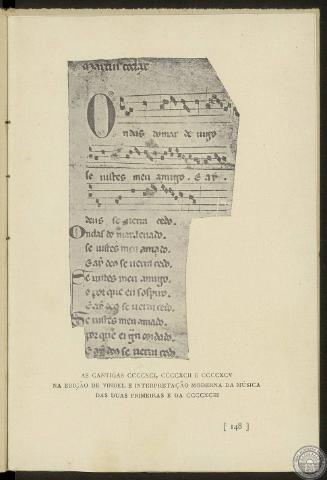 martin codax
Ondas do mar de vigo
se vistes meu amigo. E ay
deus se uerra cedo.
Ondas do mar leuado.
se vistes meu amado.
E ay deus se uerra cedo.
Se vistes meu amigo.
o por que eu sospiro.
E ay deus se uerra cedo.
Se vistes meu amado.
por que ei gram coidado.
E ay deus se uerra cedo
AS CANTIGAS CCCCXCI, CCCCXCII E CCCCXCV
NA EDIÇÃO DE VINDEL E INTERPRETAÇÃO MODERNA DA MÚSICA
DAS DUAS PRIMEIRAS E DA CCCCXCIII
[ 148 ]